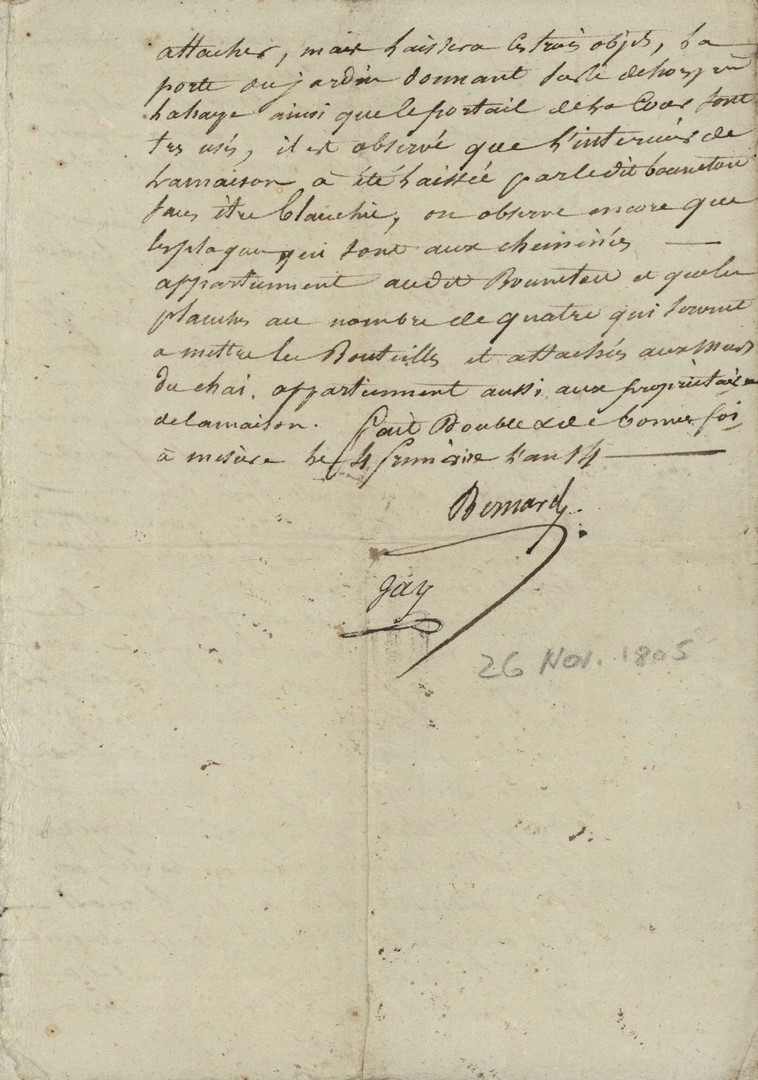 attacher, mais haissera ces trois objets, La
porte du jardin donnant sur le dehors
Lahaye ainsi que le portail de la Cour sont
tres usés, il est observé que L'interieur de
Lamaison a été haissée parledit bouneteau
sans être blanchie, on observe encore que
les plaques qui sont aux cheminées —
appartiennent audit Bouneteau et que les
planches au nombre de quatre qui servent
a mettre les Bouteilles et attachés aux Murs
du chai, appartiennent aussi aux proprietaires
delamaison. fait Double & de bonne foi
à mesure Le 4 frimaire L'an 14 —
Bernard.
gay
26 Nov. 1805